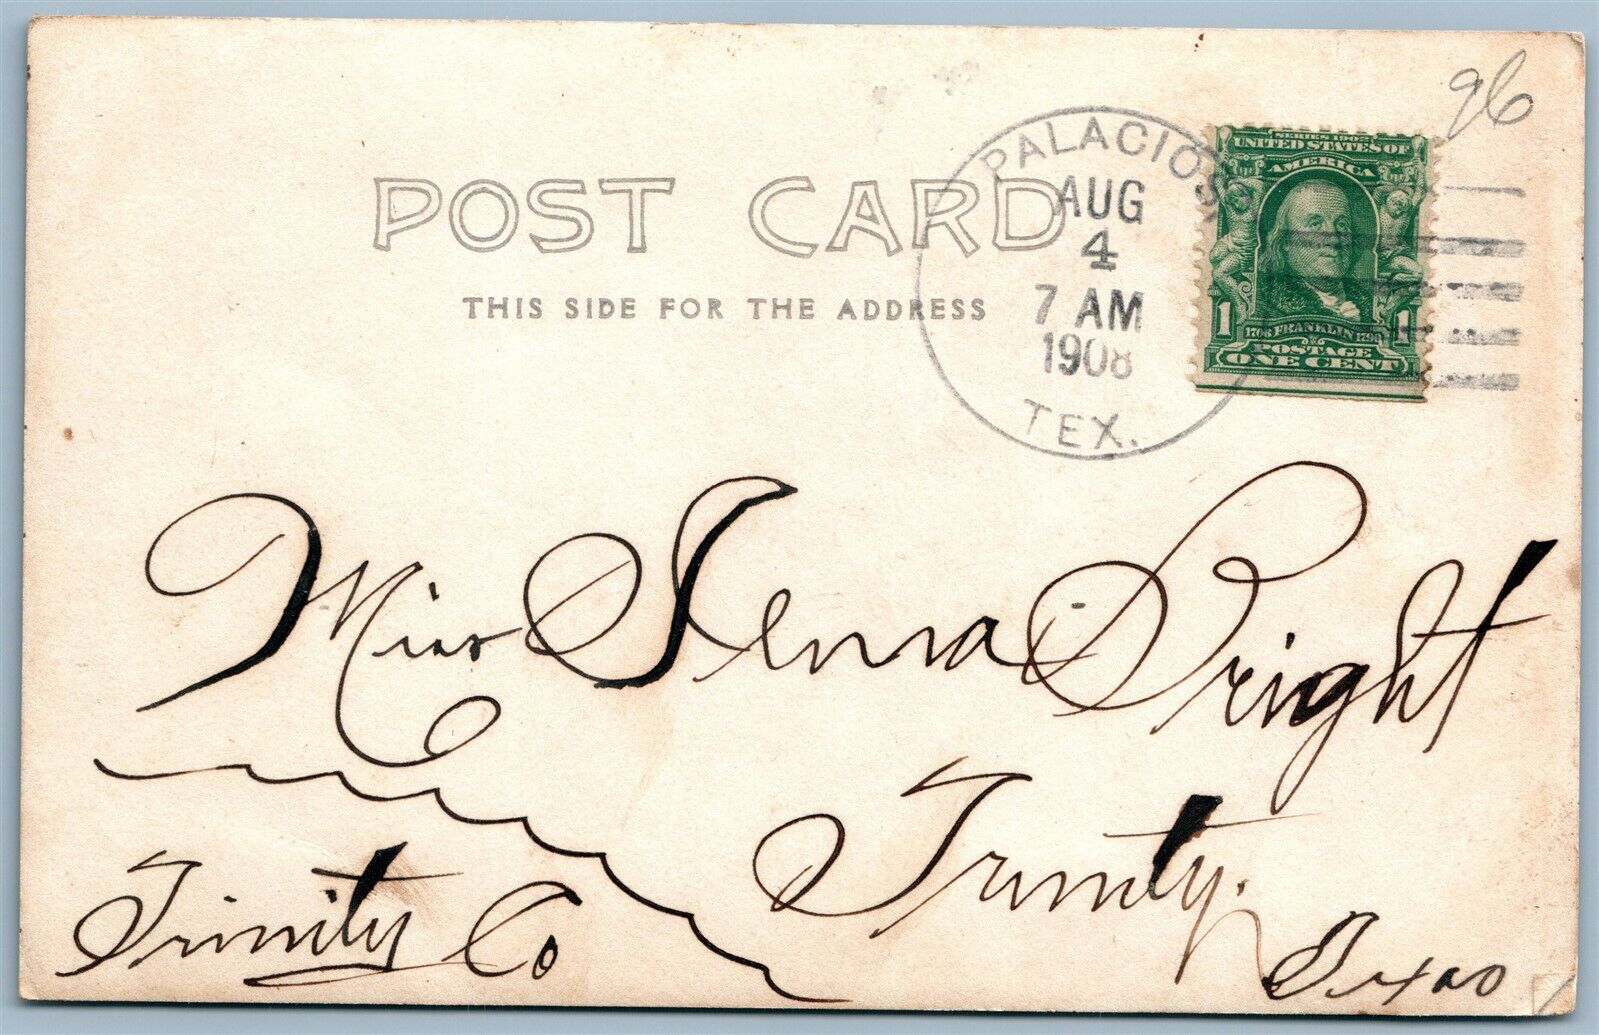 96
PALACIOS
AUG
4
7 AM
1908
TEX.
SERIES 1902
UNITED STATES OF
AMERICA
1 1706 FRANKLIN 1790 1
POSTAGE
ONE CENT
POST CARD
THIS SIDE FOR THE ADDRESS
Miss Lena Wright
Trinity.
Trinity Co
Texas